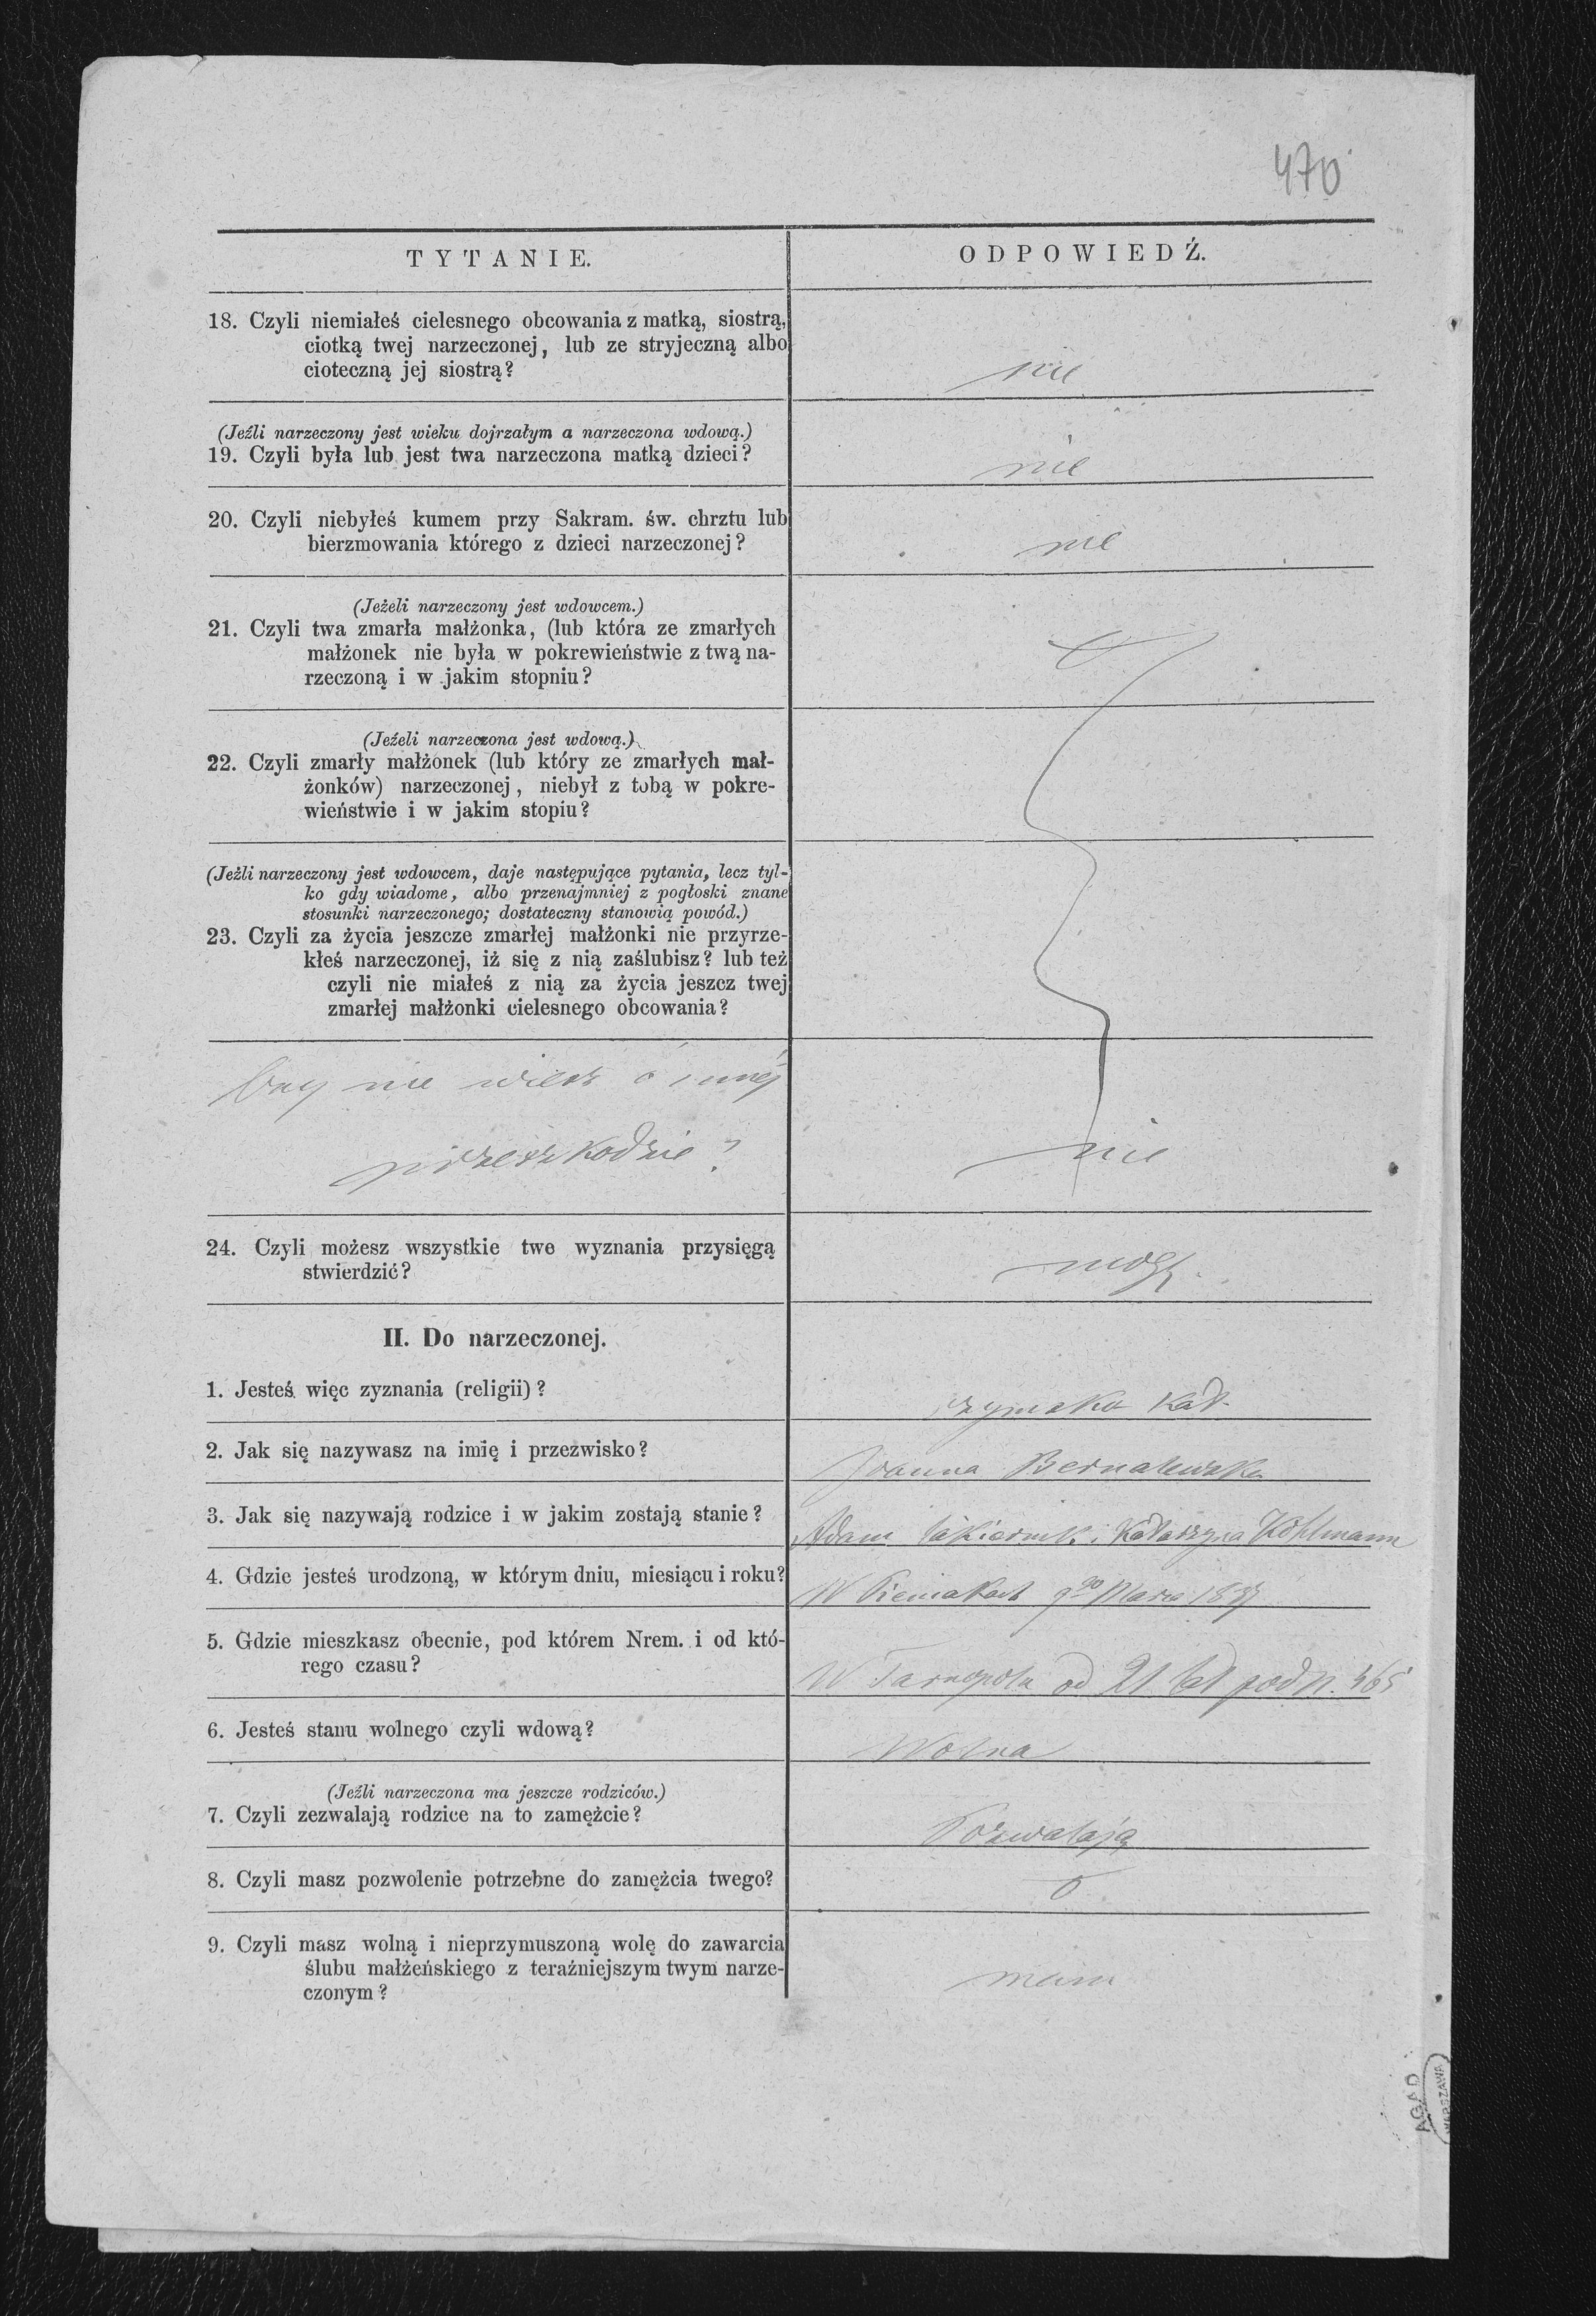 470
TYTANIE.
ODPOWIEDŹ.
18. Czyli niemiałeś cielesnego obcowania z matką, siostrą,
ciotką twej narzeczonej, lub ze stryjeczną albo
cioteczną jej siostrą?
nie
(Jeźli narzeczony jest wieku dojrzałym a narzeczona wdową.)
19. Czyli była lub jest twa narzeczona matką dzieci?
nie
20. Czyli niebyłeś kumem przy Sakram. św. chrztu lub
bierzmowania którego z dzieci narzeczonej?
nie
(Jeżeli narzeczony jest wdowcem.)
21. Czyli twa zmarła małżonka, (lub która ze zmarłych
małżonek nie była w pokrewieństwie z twą na-
rzeczoną i w jakim stopniu?
(Jeżeli narzeczona jest wdową.)
22. Czyli zmarły małżonek (lub który ze zmarłych mał-
żonków) narzeczonej, niebył z tobą w pokre-
wieństwie i w jakim stopiu?
(Jeźli narzeczony jest wdowcem, daje następujące pytania, lecz tyl-
ko gdy wiadome, albo przenajmniej z pogłoski znane
stosunki narzeczonego; dostateczny stanowią powód.)
23. Czyli za życia jeszcze zmarłej małżonki nie przyrze-
kłeś narzeczonej, iż się z nią zaślubisz? lub też
czyli nie miałeś z nią za życia jeszcz twej
zmarłej małżonki cielesnego obcowania?
Czy nie wiesz o innej
przeszkodzie?
nie
24. Czyli możesz wszystkie twe wyznania przysięgą
stwierdzić?
mogę.
II. Do narzeczonej.
1. Jesteś więc zyznania (religii)?
rzymsko kat.
2. Jak się nazywasz na imię i przezwisko?
Joanna Bernalewska
3. Jak się nazywają rodzice i w jakim zostają stanie?
Adam lakiernik i Katarzyna Kohlmann
4. Gdzie jesteś urodzoną, w którym dniu, miesiącu i roku?
W Pieniakach 9go Marca
5. Gdzie mieszkasz obecnie, pod którem Nrem. i od któ-
rego czasu?
W Tarnopolu od 21 lat pod n. 465
6. Jesteś stanu wolnego czyli wdową?
Wolna
(Jeźli narzeczona ma jeszcze rodziców.)
7. Czyli zezwalają rodzice na to zamężcie?
Pozwalają
8. Czyli masz pozwolenie potrzebne do zamężcia twego?
0
9. Czyli masz wolną i nieprzymuszoną wolę do zawarcia
ślubu małżeńskiego z teraźniejszym twym narze-
czonym?
mam
AGAD
WARSZAWA